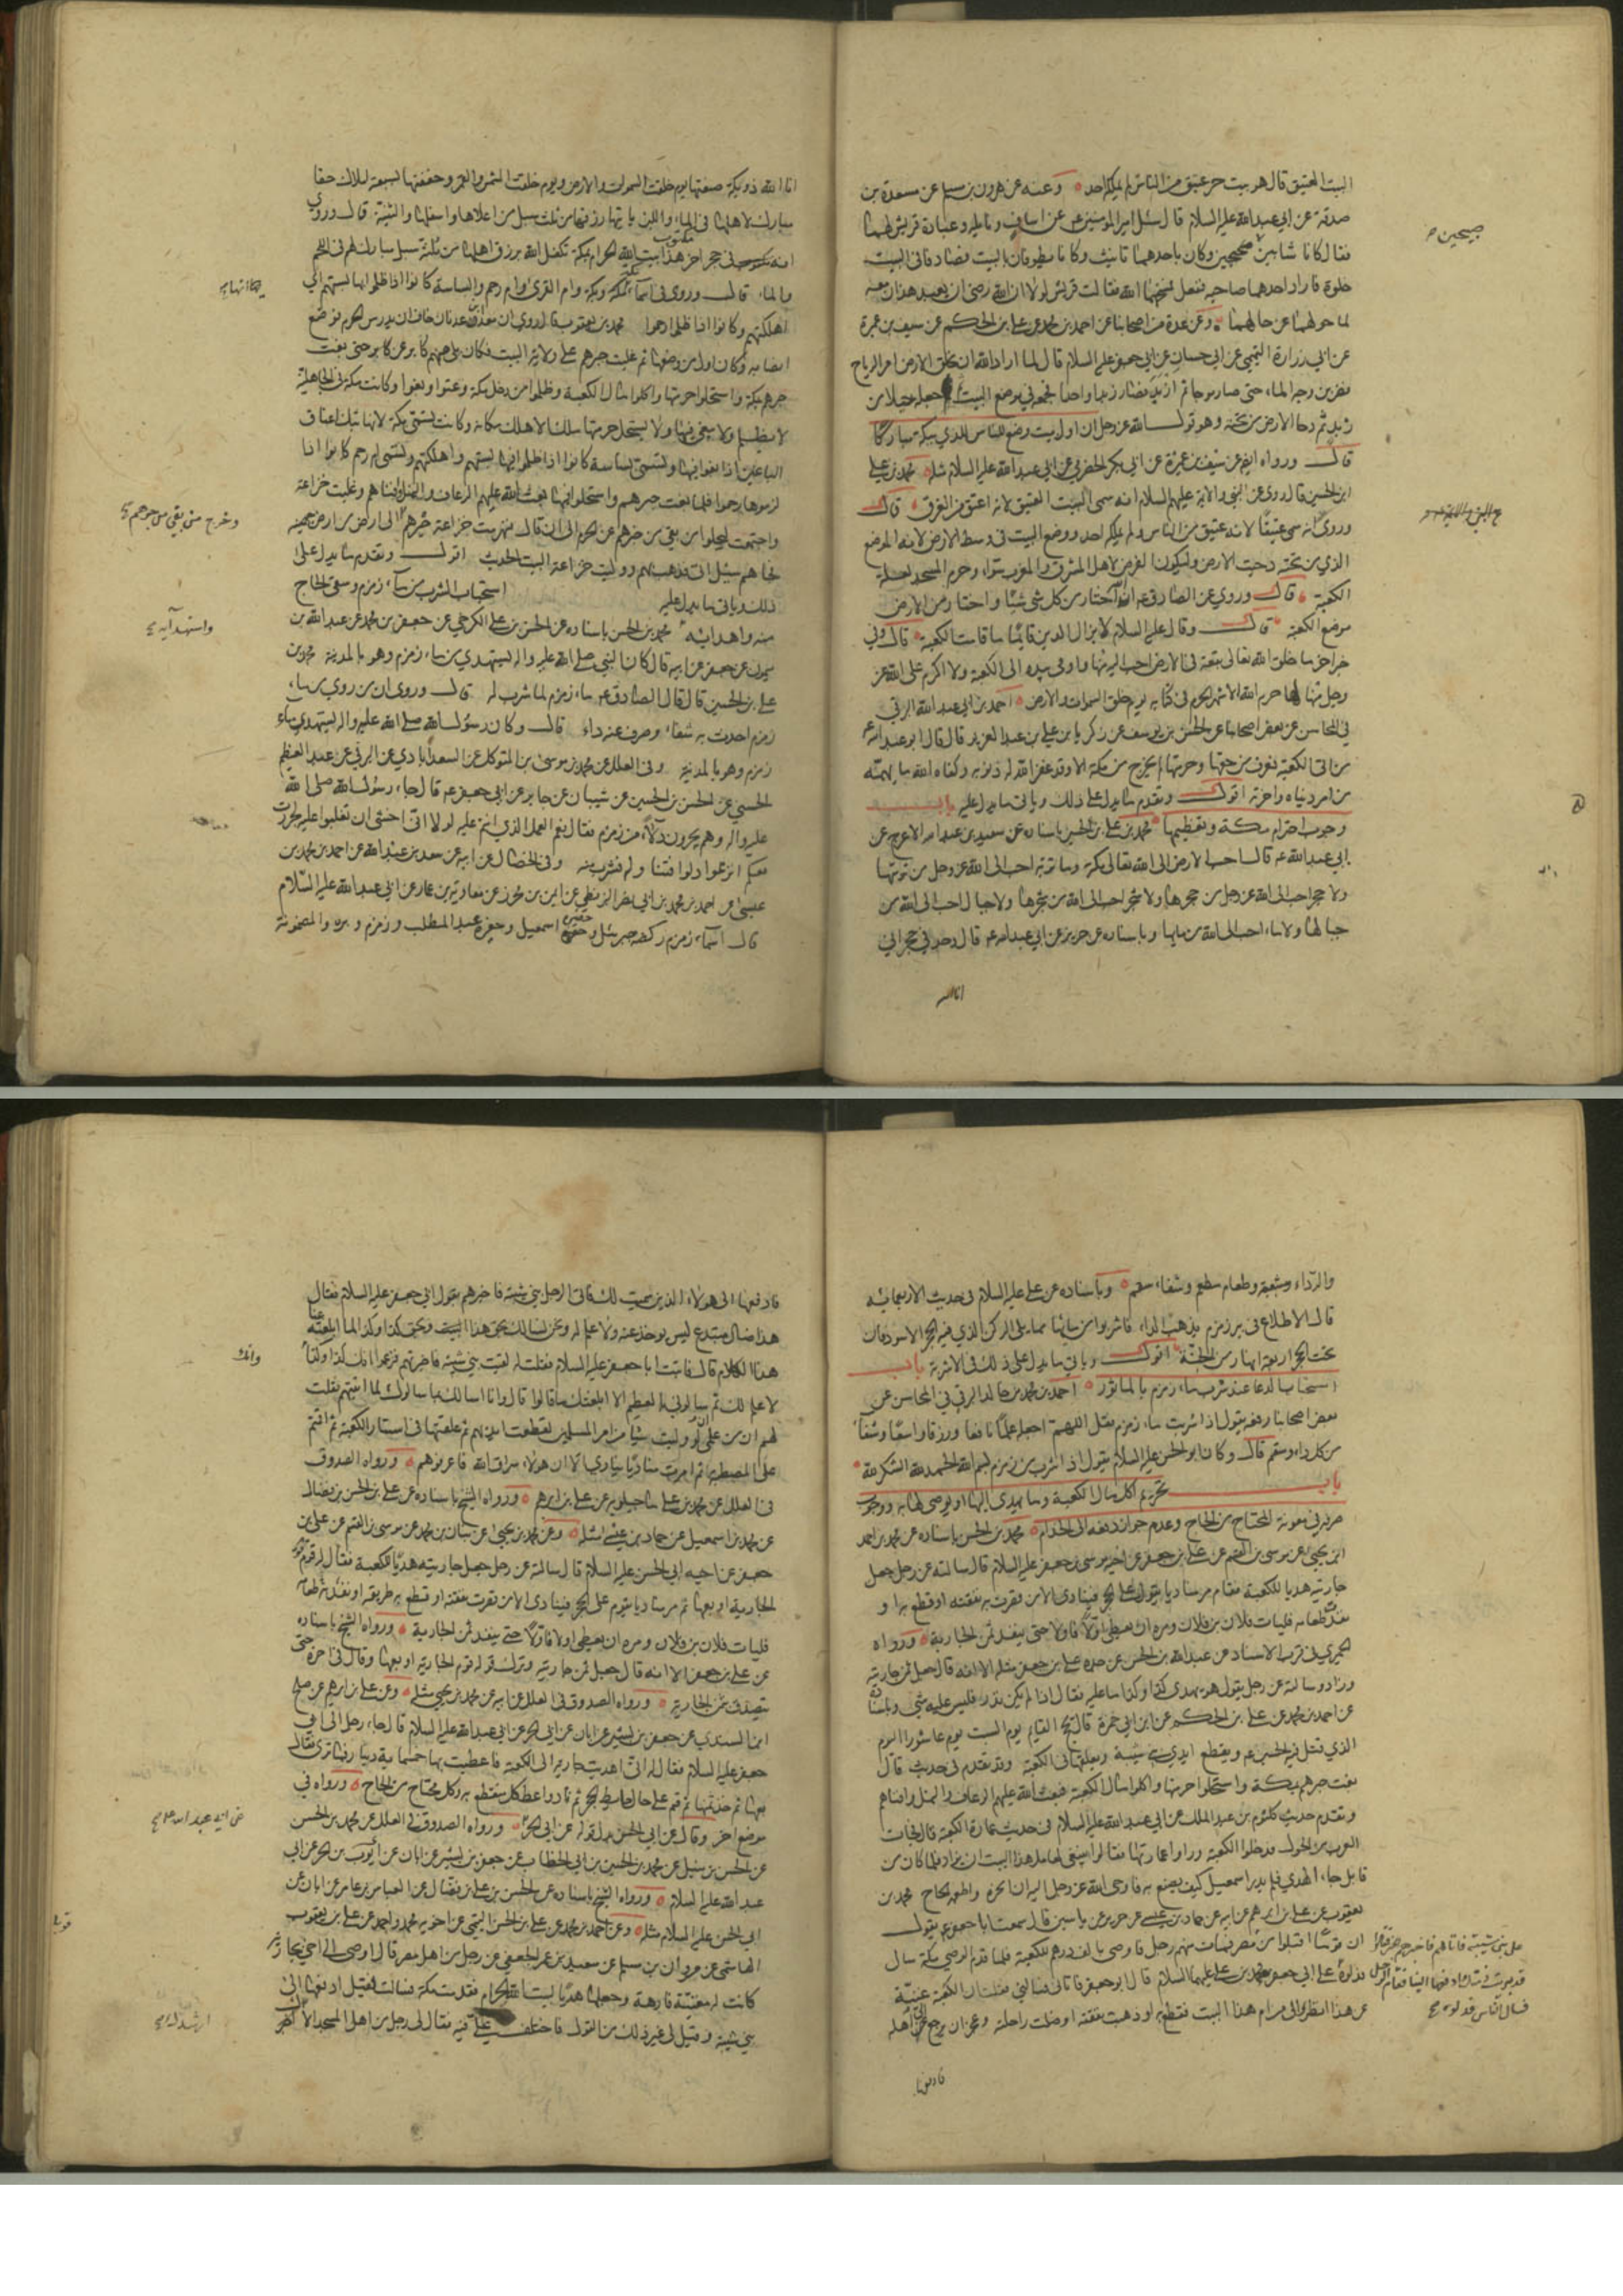 البيت العتيق قال هو بيت حر عتيق من الناس لم يملكه احد وعنه عن هرون بن مسلم عن مسعدة بن
صدقة عن ابي عبدالله عليه السلام قال سئل امير المومنين عن اساف ونايله وعبادة قريش لهما
فقال كانا شابين صبيحين وكان باحدهما تانيث وكانا يطوفان بالبيت فصادفا في البيت
خلوة فاراد احدهما صاحبه ففعل فمسخهما الله فقالت قريش لولا ان الله رضى ان يعبد هذان معه
لما حولهما عن حالهما وعن عدة من اصحابنا عن احمد بن محمد عن علي بن الحكم عن سيف بن عميرة
عن ابي زرارة التميمي عن ابي حسان عن ابي جعفر عليه السلام قال لما اراد الله ان يخلق الارض امر الرياح
فضربن وجه الماء حتى صار موجا ثم ازبد فصار زبدا واحدا فجمعه في موضع البيت ثم جعله جبلا من
زبد ثم دحا الارض من تحته وهو قول الله عز وجل ان اول بيت وضع للناس للذي ببكة مباركا
قال ورواه ايضا عن سيف بن عميرة عن ابي بكر الحضرمي عن ابي عبدالله عليه السلام مثله محمد بن علي
ابن الحسين قال روي عن النبي والائمة عليهم السلام انه سمى البيت العتيق لانه اعتق من الغرق قال
وروى انه سمى عتيقا لانه عتيق من الناس ولم يملكه احد ووضع البيت في وسط الارض لانه الموضع
الذي من تحته دحيت الارض وليكون الفرض لاهل المشرق والمغرب سواء وحرم المسجد لعلة
الكعبة قال وروي عن الصادق ع ان الله اختار من كل شي شيئا واختار من الارض
موضع الكعبة قال وقال عليه السلام لا يزال الدين قائما ما قامت الكعبة قال وفي
خبر اخر ما خلق الله تعالى بقعة في الارض احب اليه منها واومى بيده الى الكعبة ولا اكرم على الله عز
وجل منها لها حرم الله الاشهر الحرم في كتابه يوم خلق السموات والارض احمد بن ابي عبدالله البرقي
في المحاسن عن بعض اصحابنا عن الحسن بن يوسف عن زكريا بن علي بن عبد العزيز قال قال ابو عبدالله ع
من اتى الكعبة فعرف من حقها وحرمتها لم يخرج من مكة الا وقد غفر الله له ذنوبه وكفاه الله ما يهمه
من امر دنياه واخرته اقول وتقدم ما يدل على ذلك وياتي ما يدل عليه باب
وجوب احترام مكة وتعظيمها محمد بن علي بن الحسين باسناده عن سعيد بن عبدالله الاعرج عن
ابي عبدالله ع قال احب الارض الى الله تعالى مكة وما تربة احب الى الله عز وجل من تربتها
ولا حجر احب الى الله عز وجل من حجرها ولا شجر احب الى الله من شجرها ولا جبال احب الى الله من
جبالها ولا ماء احب الى الله من مائها وباسناده عن حريز عن ابي عبدالله ع قال وجد في حجر اني
انا الله
صبيحين
انا الله ذو بكة صنعتها يوم خلقت السموات والارض ويوم خلقت الشمس والقمر وحففتها بسبعة املاك حفا
مبارك لاهلها في الماء واللبن ياتيها رزقها من ثلث سبل من اعلاها واسفلها والثنية قال وروي
انه مكتوب في حجر اخر هذا بيت الله الحرام بمكة تكفل الله برزق اهله من ثلثة سبل مبارك لهم في اللحم
والماء قال وروى في اسماء مكة بكة وام القرى وام رحم والبساسة كانوا اذا ظلموا بها بستهم اي
اهلكتهم وكانوا اذا ظلموا رحموا محمد بن يعقوب قال روى ان معد بن عدنان خاف ان يدرس الحرم فوضع
انصابه وكان اول من وضعها ثم غلبت جرهم على ولاية البيت فكان يلى منهم كابر عن كابر حتى بغت
جرهم بمكة واستحلوا حرمتها واكلوا مال الكعبة وظلموا من دخل مكة وعتوا وبغوا وكانت مكة في الجاهلية
لا يظلم ولا يبغى فيها ولا يستحل حرمتها ملك الا هلك مكانه وكانت تسمى بكة لانها تبك اعناق
الباغين اذا بغوا فيها وتسمى بساسة كانوا اذا ظلموا فيها بستهم واهلكتهم وتسمى ام رحم كانوا اذا
لزموها رحموا فلما بغت جرهم واستحلوا فيها بعث الله عليهم الرعاف والنمل وافناهم وغلبت خزاعة
واجتمعت ليجلوا من بقى من جرهم عن الحرم الى ان قال فهزمت خزاعة جرهم الى ارض من ارض جهينة
فجاءهم سيل اتى فذهب بهم ووليت خزاعة البيت الحديث اقول وتقدم ما يدل على
ذلك وياتي ما يدل عليه استحباب الشرب من ماء زمزم وسقى الحاج
منه واهدائه محمد بن الحسن باسناده عن الحسن بن علي الكرخي عن جعفر بن محمد عن عبدالله بن
ميمون عن جعفر عن ابيه قال كان النبي صلى الله عليه واله يستهدي من ماء زمزم وهو بالمدينة محمد بن
علي بن الحسين قال قال الصادق ع ماء زمزم لما شرب له قال وروى ان من روي من ماء
زمزم احدث به شفاء وصرف عنه داء قال وكان رسول الله صلى الله عليه واله يستهدي ماء
زمزم وهو بالمدينة وفي العلل عن محمد بن موسى بن المتوكل عن السعدآبادي عن البرقي عن عبد العظيم
الحسني عن الحسن بن الحسين عن شيبان عن جابر عن ابي جعفر ع قال جاء رسول الله صلى الله
عليه واله وهم يجرون دلاء من زمزم فقال نعم العمل الذي انتم عليه لولا اني اخشى ان تغلبوا عليه لجررت
معكم انزعوا دلوا فتناوله فشرب منه وفي الخصال عن ابيه عن سعد بن عبدالله عن احمد بن محمد بن
عيسى عن احمد بن محمد بن ابي نصر البزنطي عن ايمن بن محرز عن معاوية بن عمار عن ابي عبدالله عليه السلام
قال اسماء زمزم ركضة جبرئيل وحفيرة اسمعيل وحفيرة عبد المطلب وزمزم وبره والمضمونة
وخرج من بقي من جرهم
واستهدآئه
والرداء ومشبعة وطعام مطعم وشفاء سقم وباسناده عن علي عليه السلام في حديث الاربعمائة
قال الاطلاع في بير زمزم يذهب الداء فاشربوا من مائها مما يلي الركن الذي فيه الحجر الاسود فان
تحت الحجر اربعة انهار من الجنة اقول وياتي ما يدل على ذلك في الاشربة باب
استحباب الدعا عند شرب ماء زمزم بالماثور احمد بن محمد بن خالد البرقي في المحاسن عن
بعض اصحابنا رفعه يقول اذا شربت ماء زمزم فقل اللهم اجعله علما نافعا ورزقا واسعا وشفاء
من كل داء وسقم قال وكان ابو الحسن عليه السلام يقول اذا شرب من زمزم بسم الله الحمد لله الشكر لله
باب تحريم اكل مال الكعبة وما يهدى اليها او يوصى لها به ووجوب
صرفه في معونة المحتاج من الحاج وعدم جواز دفعه الى الخدام محمد بن الحسن باسناده عن محمد بن احمد
ابن يحيى عن موسى بن القسم عن علي بن جعفر عن اخيه موسى بن جعفر عليه السلام قال سالته عن رجل جعل
جاريته هديا للكعبة فقام مر مناديا يقول على الحجر فينادى الا من قصرت به نفقته او قطع به او
نفد طعامه فليات فلان بن فلان ومره ان يعطى اولا فاولا حتى ينفد ثمن الجارية ورواه
الحميري في قرب الاسناد عن عبدالله بن الحسن عن جده علي بن جعفر مثله الا انه قال جعل ثمن جاريته
وزاد وسالته عن رجل يقول هو يهدى كذا وكذا ما عليه فقال اذا لم يكن نذرا فليس عليه شيء وباسناده
عن احمد بن محمد عن علي بن الحكم عن ابن ابي حمزة قال يخرج القايم يوم السبت يوم عاشورا اليوم
الذي قتل فيه الحسين ع ويقطع ايدي بني شيبة ويعلقها في الكعبة وقد تقدم في حديث قال
بغت جرهم بمكة واستحلوا حرمتها واكلوا مال الكعبة فبعث الله عليهم الرعاف والنمل وافناهم
وتقدم حديث كلثوم بن عبد الملك عن ابي عبدالله عليه السلام في حديث عمارة الكعبة قال فجاءت
العرب من الحول فدخلوا الكعبة وراوا عمارتها فقالوا ينبغي لعامل هذا البيت ان يزاد فلما كان من
قابل جاء الهدي فلم يدر اسمعيل كيف يصنع به فاوحى الله عز وجل اليه ان انحره واطعمه الحاج محمد بن
يعقوب عن علي بن ابرهيم عن ابيه عن حماد بن عيسى عن حريز عن ياسين قال سمعت ابا جعفر ع يقول
ان قوما اقبلوا من مصر فمات منهم رجل فاوصى بالف درهم للكعبة فلما قدم الوصي مكة سال
فدلوه على ابي جعفر محمد بن علي عليهما السلام قال ابو جعفر فاتاني فسالني فقلت ان الكعبة غنية
عن هذا انظر الى من ام هذا البيت فقطع به او ذهبت نفقته او ضلت راحلته وعجز ان يرجع الى اهله
فادفعها
على بني شيبة فاتاهم فاخبرهم الخبر فقالوا
قد برئت ذمتك ادفعها الينا فقام الرجل
فسال الناس فدلوه
فادفعها الى هولاء الذين سميت لك فاتى الرجل بني شيبة فاخبرهم بقول ابي جعفر عليه السلام فقالوا
هذا ضال مبتدع ليس يوخذ عنه ولا علم له ونحن نسالك بحق هذا البيت وبحق كذا وكذا لما ابلغته عنا
هذا الكلام قال فاتيت ابا جعفر عليه السلام فقلت له لقيت بني شيبة فاخبرتهم فزعموا انك كذا وكذا
لا علم لك ثم سالوني بالعظيم الا ابلغتك ما قالوا قال وانا اسالك بما سالوك لما اتيتهم فقلت
لهم ان من علمي لو وليت شيئا من امر المسلمين لقطعت ايديهم ثم علقتها في استار الكعبة ثم اقمتهم
على المصطبة ثم امرت مناديا ينادي الا ان هولاء سراق الله فاعرفوهم ورواه الصدوق
في العلل عن محمد بن علي ماجيلويه عن علي بن ابرهيم ورواه الشيخ باسناده عن علي بن الحسن بن فضال
عن محمد بن اسمعيل عن حماد بن عيسى مثله وعن محمد بن يحيى عن بنان بن محمد عن موسى بن القسم عن علي بن
جعفر عن اخيه ابي الحسن عليه السلام قال سالته عن رجل جعل جاريته هديا للكعبة فقال له قوم
الجارية او بعها ثم مر مناديا يقوم على الحجر فينادى الا من قصرت نفقته او قطع به طريقه او نفد طعامه
فليات فلان بن فلان ومره ان يعطى اولا فاولا حتى ينفد ثمن الجارية ورواه الشيخ باسناده
عن علي بن جعفر الا انه قال جعل ثمن جاريته وترك قوله قوم الجارية او بعها وقال في اخره حتى
يتصدق بثمن الجارية ورواه الصدوق في العلل عن ابيه عن محمد بن يحيى مثله وعن علي بن ابرهيم عن صالح
ابن السندي عن جعفر بن بشير عن ابان عن ابي الحر عن ابي عبدالله عليه السلام قال جاء رجل الى ابي
جعفر عليه السلام فقال له اني اهديت جارية الى الكعبة فاعطيت بها خمسماية دينار فما ترى فقال
بعها ثم خذ ثمنها ثم قم على حائط الحجر ثم ناد واعط كل منقطع به وكل محتاج من الحاج ورواه في
موضع اخر وقال عن ابي الحسن بدل قوله عن ابي الحر ورواه الصدوق في العلل عن محمد بن الحسن
عن الحسن بن متيل عن محمد بن الحسين بن ابي الخطاب عن جعفر بن بشير عن ابان عن ايوب بن الحر عن ابي
عبدالله عليه السلام ورواه الشيخ باسناده عن الحسن بن علي بن فضال عن العباس بن عامر عن ابان عن
ابي الحسن عليه السلام مثله وعن احمد بن محمد عن علي بن الحسن التيمي عن اخويه محمد واحمد عن علي بن يعقوب
الهاشمي عن مروان بن مسلم عن سعيد بن عمر الجعفي عن رجل من اهل مصر قال اوصى الي اخي بجارية
كانت له مغنية فارهة وجعلها هديا لبيت الله الحرام فقدمت مكة فسالت فقيل ادفعها الى
بني شيبة وقيل لي غير ذلك من القول فاختلف علي فيه فقال لي رجل من اهل المسجد الا
وانك
عن ابي عبدالله
ارشدك